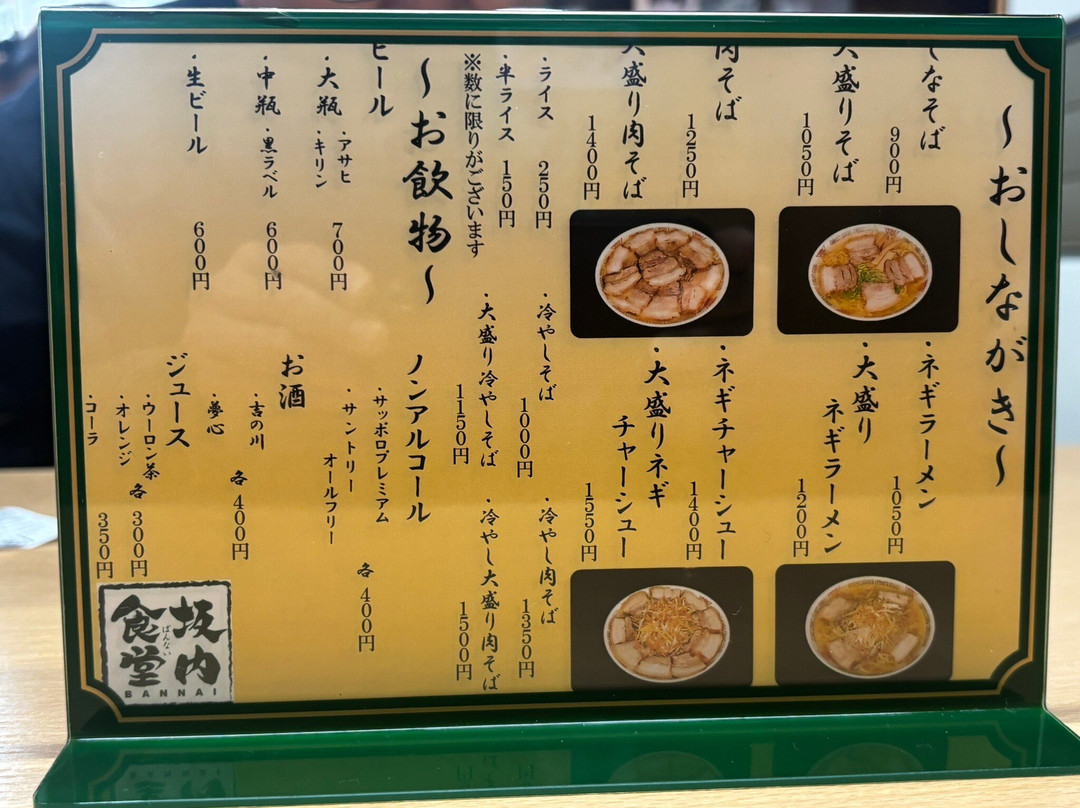 〜おしながき〜
しなそば
900円
大盛りそば
1050円
肉そば
1250円
大盛り肉そば
1400円
・ネギラーメン
1050円
・大盛り
ネギラーメン
1200円
・ネギチャーシュー
1400円
・大盛りネギ
チャーシュー
1550円
・ライス
250円
・半ライス
150円
※数に限りがございます
・冷やしそば
1000円
・大盛り冷やしそば
1150円
・冷やし肉そば
1350円
・冷やし大盛り肉そば
1500円
〜お飲物〜
ビール
・大瓶
・アサヒ
・キリン
700円
・中瓶
・黒ラベル
600円
・生ビール
600円
ノンアルコール
・サッポロプレミアム
・サントリー
オールフリー
各 400円
お酒
・吉の川
・夢心
各 400円
ジュース
・ウーロン茶
・オレンジ
各 300円
・コーラ
350円
坂内
食堂
ばんない
BANNAI